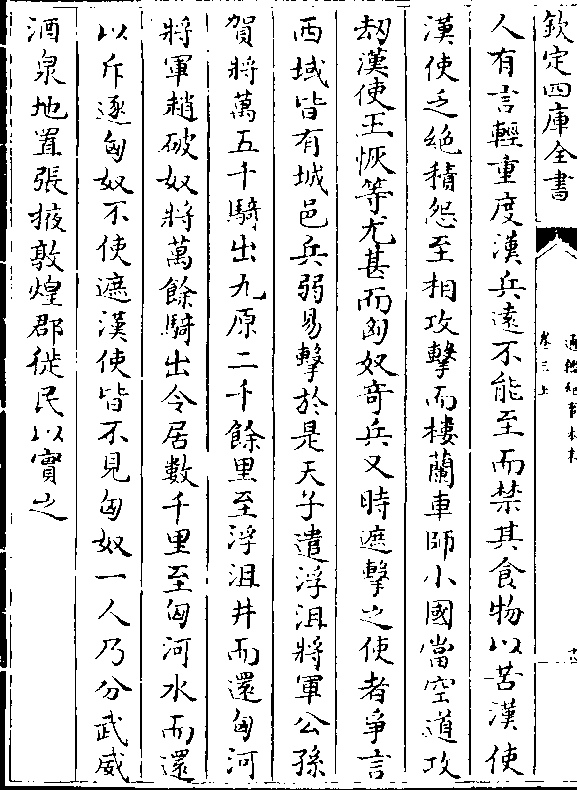 欽定四庫全書
通鑑紀事本末
卷三上
人有言輕重度漢兵遠不能至而禁其食物以苦漢使
漢使乏絶積怨至相攻擊而樓蘭車師小國當空道攻
刼漢使王恢等尤甚而匈奴奇兵又時遮擊之使者爭言
西域皆有城邑兵弱易擊於是天子遣浮沮將軍公孫
賀將萬五千騎出九原二千餘里至浮沮井而還匈河
將軍趙破奴將萬餘騎出令居數千里至匈河水而還
以斥逐匈奴不使遮漢使皆不見匈奴一人乃分武威
酒泉地置張掖敦煌郡徙民以實之